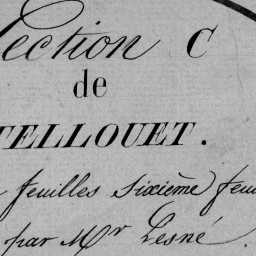 ection C
de
TELLOUET.
feuilles Sixième feu
par Mr Lesné.